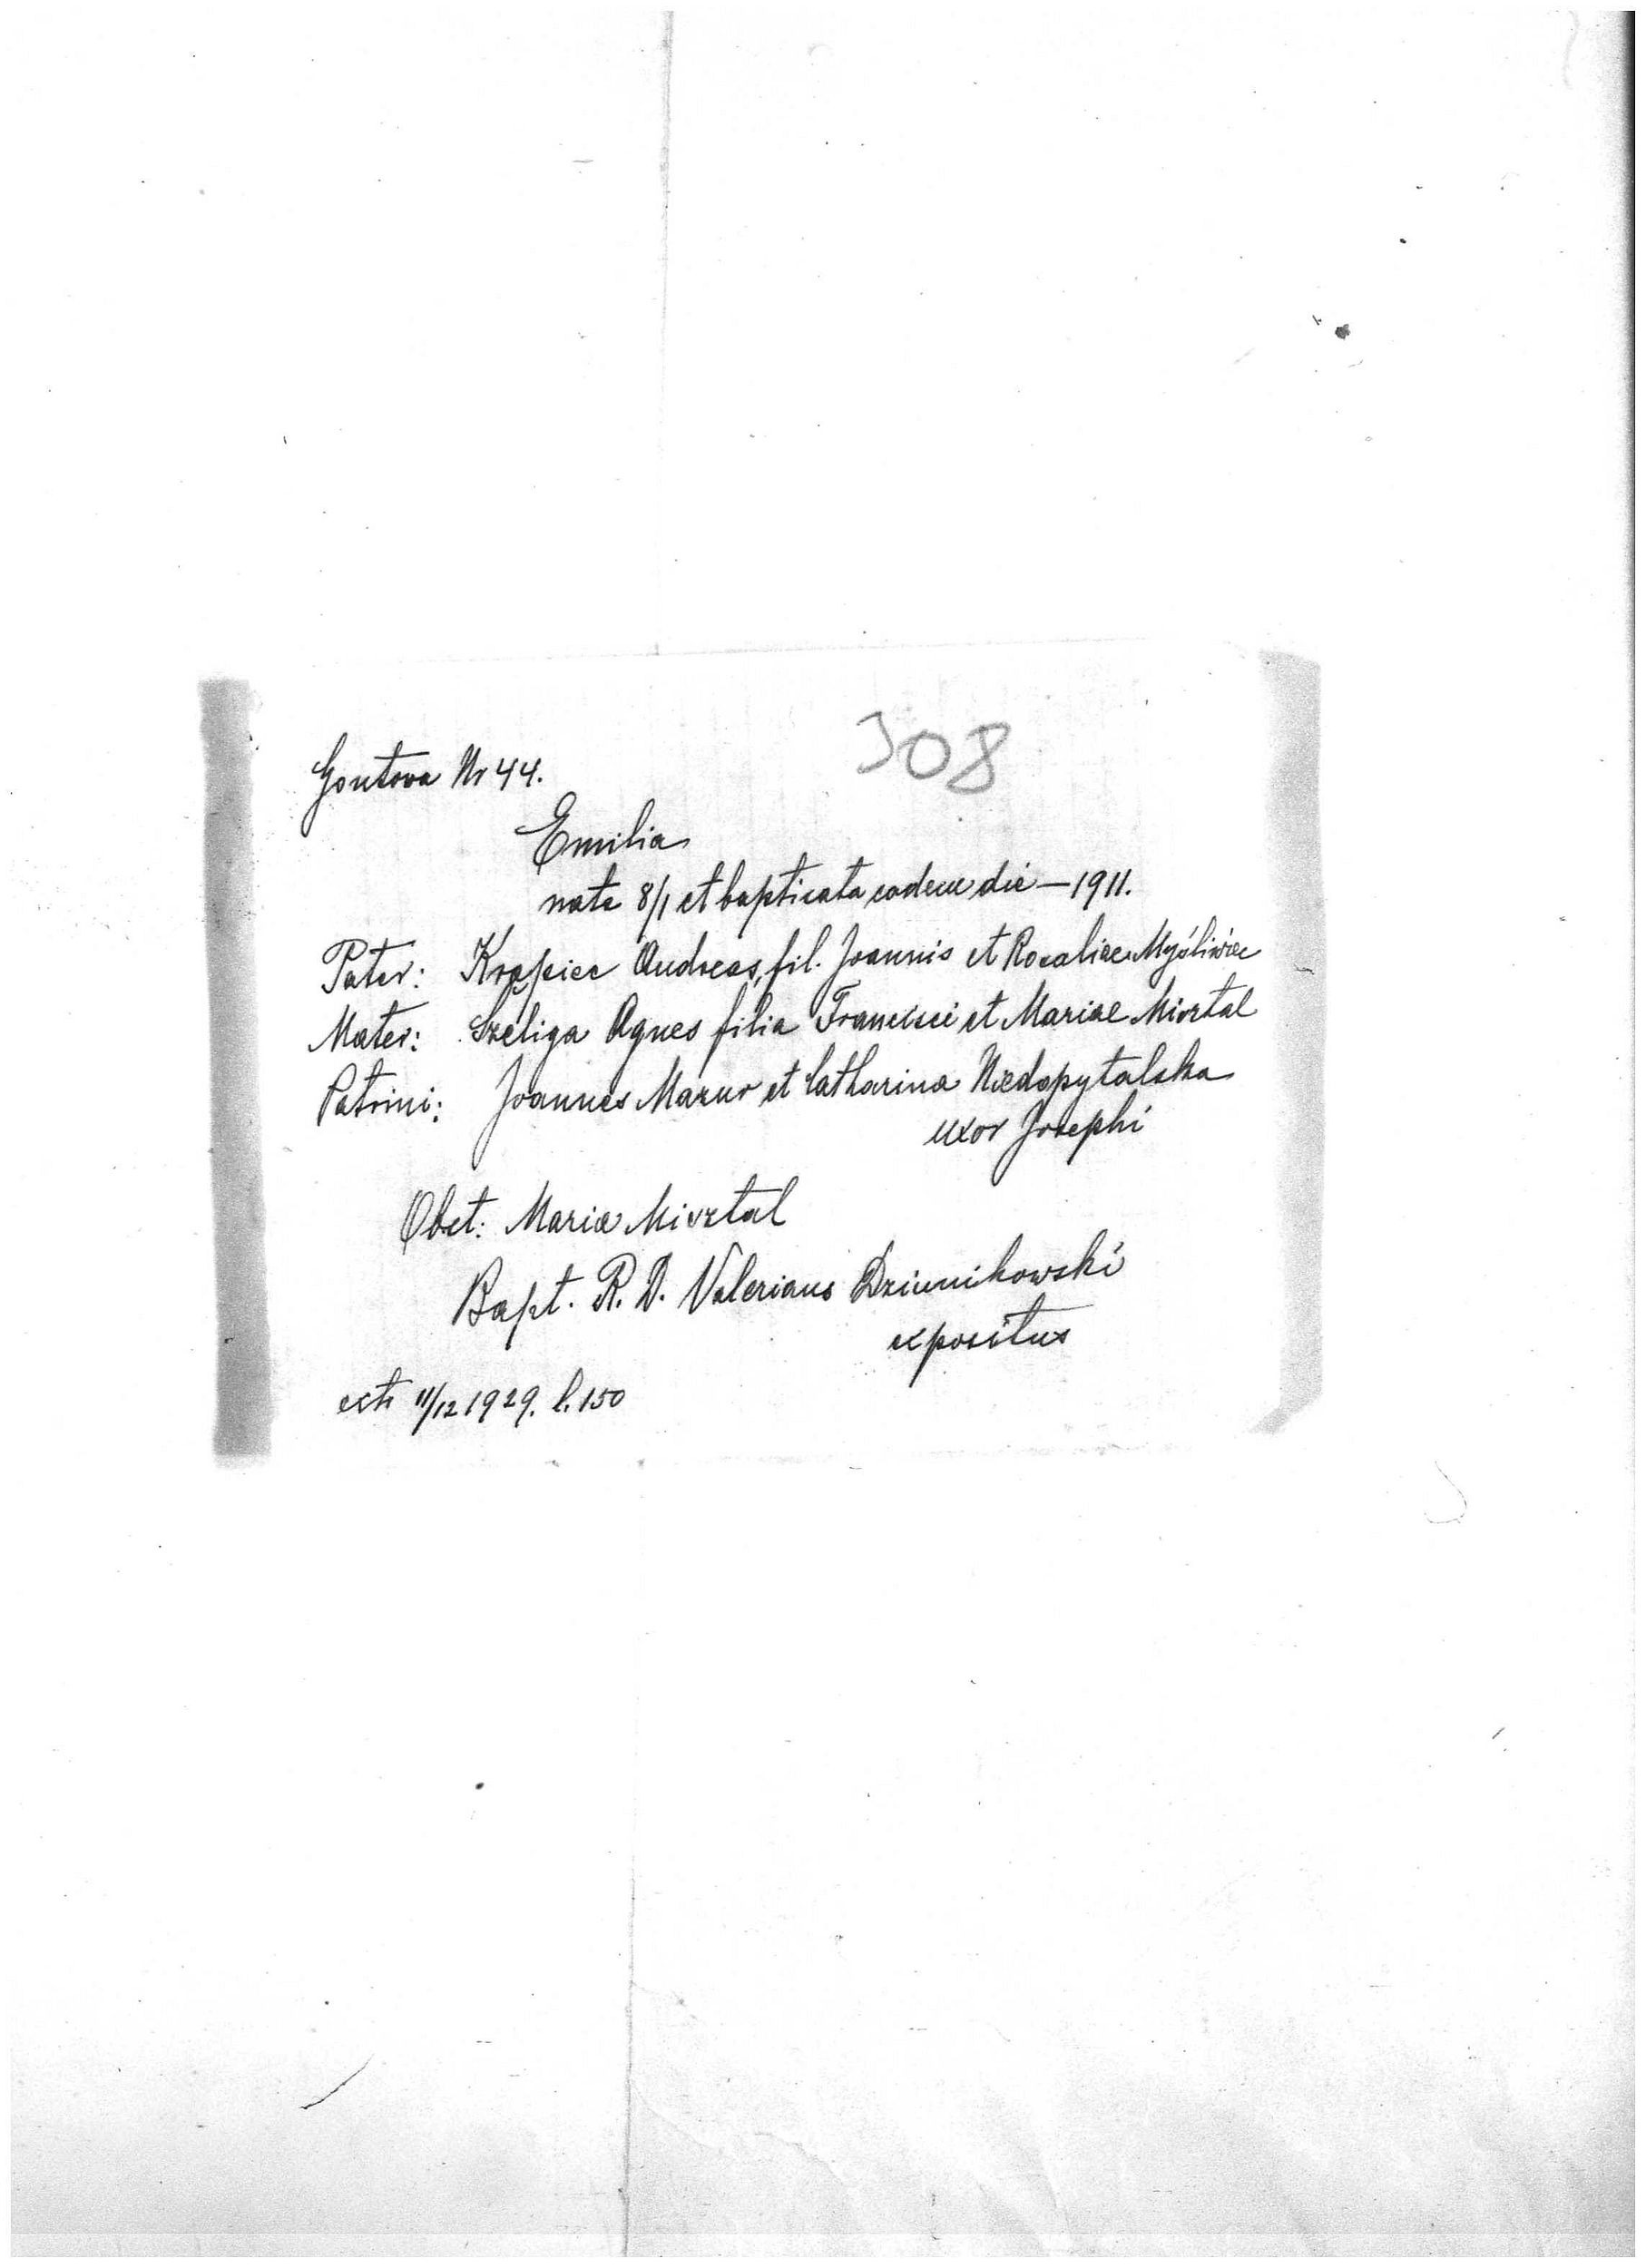 308
Gontova Nr 44.
Emilia
nata 8/1 et baptizata eodem die – 1911.
Pater: Krąpiec Andreas, fil. Joannis et Rozaliae Myśliwiec
Mater: Szeliga Agnes filia Francisci et Mariae Misztal
Patrini: Joannes Mazur et Catharina Niedopytalska
uxor Josephi
Obst: Maria Misztal
Bapt. R. D. Valerianus Dziunikowski
expositus
extr 11/12 1929. l. 150